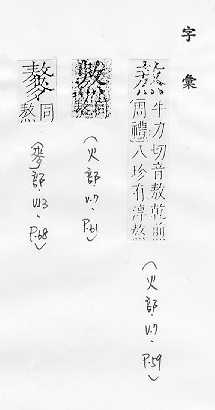 字彙
牛刀切音敖乾煎
周禮八珍有淳熬
（火部.V.7. P.59）
同
熬
（火部.V.7. P.61）
同
熬
（麥部.V13. P.68）